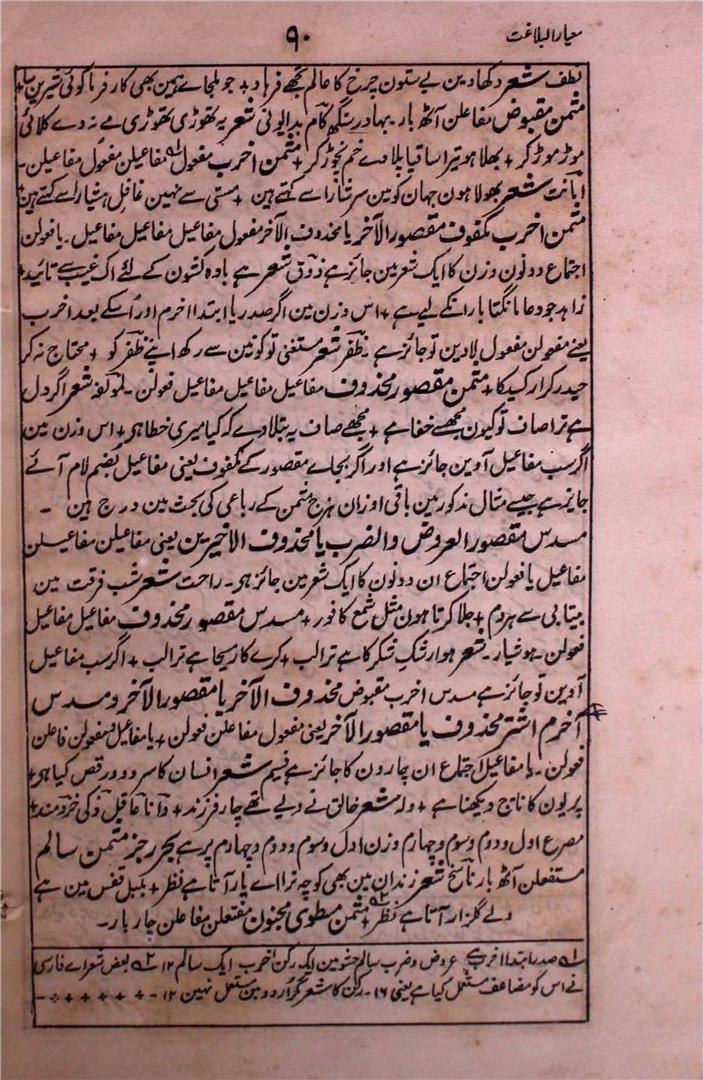 معیار البلاغت
۹۰
لطف شعر دکھادین بے ستون چرخ کا عالم تجھے فرہاد + جو ملجاے ہمین بھی کارفرما کوئی شیرین سا +
مثمن مقبوض مفاعلن آٹھ بار۔ بہادر سنگھ کام بدایونی شعر یہ تھوڑی تھوڑی مے نہ دے کلائی
موڑ موڑ کر + بھلا ہو تیرا ساقیا پلادے خم نچوڑ کر + مثمن اخرب مفعول مفاعیلن مفعول مفاعیلن۔
امانت شعر بھولا ہون جہان کو مین سرشار اسے کہتے ہین + مستی سے نہین غافل ہشیار اسے کہتے ہین +
مثمن اخرب مکفوف مقصور الآخر یا محذوف الآخر مفعول مفاعیل مفاعیل مفاعیل۔ یا فعولن
اجتماع دونون وزن کا ایک شعر مین جائز ہے ذوق شعر ہے بادہ کشون کے لئے اک غیب سے تائید +
زاہد جو دعا مانگتا باران کے لیے ہے + اس وزن مین اگر صدر یا ابتدا اخرم اور اُسکے بعد اخرب
یعنے مفعولن مفعول لادین تو جائز ہے۔ ظفر شعر مستغنی تو کونین سے رکھ اپنے ظفر کو + محتاج نہ کر
حیدر کرار کسیکا + مثمن مقصور محذوف مفاعیل مفاعیل مفاعیل فعولن۔ لمؤلفہ شعر اگر دل
ہے ترا صاف تو کیون مجھسے خفا ہے + مجھے صاف یہ بتلادے کہ کیا میری خطا ہی + اس وزن مین
اگر سب مفاعیل آوین جائز ہے اور اگر بجاے مقصور کے مکفوف یعنی مفاعیل بضم لام آئے
جائز ہے جیسے مثال مذکور مین باقی اوزان ہزج مثمن کے رباعی کی بحث مین درج ہین۔
مسدس مقصور العروض والضرب یا محذوف الاخیرین یعنی مفاعیلن مفاعیلن
مفاعیل یا فعولن اجتماع ان دونون کا ایک شعر مین جائز ہو۔ راحت شعر شب فرقت مین
بیتابی سے ہردم + جلا کرتا ہون مثل شمع کافور + مسدس مقصور محذوف مفاعیل مفاعیل
فعولن۔ ہوشیار۔ شعر ہوا رشکِ شکر کا ہے ترا لب + کرے کار مسیحا ہے ترا لب + اگر سب مفاعیل
آوین تو جائز ہے مسدس اخرب مقبوض محذوف الآخر یا مقصور الآخر و مسدس
اخرم اشتر محذوف یا مقصور الآخر یعنی مفعول مفاعلن فعولن + یا مفاعیل و مفعولن فاعلن
فعولن۔ یا مفاعیل اجتماع ان چارون کا جائز ہے نسیم شعر انسان کا سرود و رقص کیا ہو +
پریون کا ناچ دیکھنا ہے + ولہ شعر خالق نے دیے تھے چار فرزند + دانا عاقل ذکی خردمند +
مصرع اول و دوم و سوم و چہارم وزن اول و سوم و دوم و چہارم پر ہے بحر رجز مثمن سالم
مستفعلن آٹھ بار ناسخ شعر زندان مین بھی کوچہ ترا اے یار آتا ہے نظر + بلبل قفس مین ہے
ولے گلزار آتا ہے نظر + مثمن مطوی مخبون مفتعلن مفاعلن چار بار۔
۱ صدر یا ابتدا اخرب ہے عروض و ضرب سالم حشو مین ایک رکن اخرب ایک سالم ۱۲ ۲ بعض شعراے فارسی
نے اس کو مضاعف مستعمل کیا ہے یعنی ۱۶۔ رکن کا شعر مگر اردو مین مستعمل نہین ۱۲